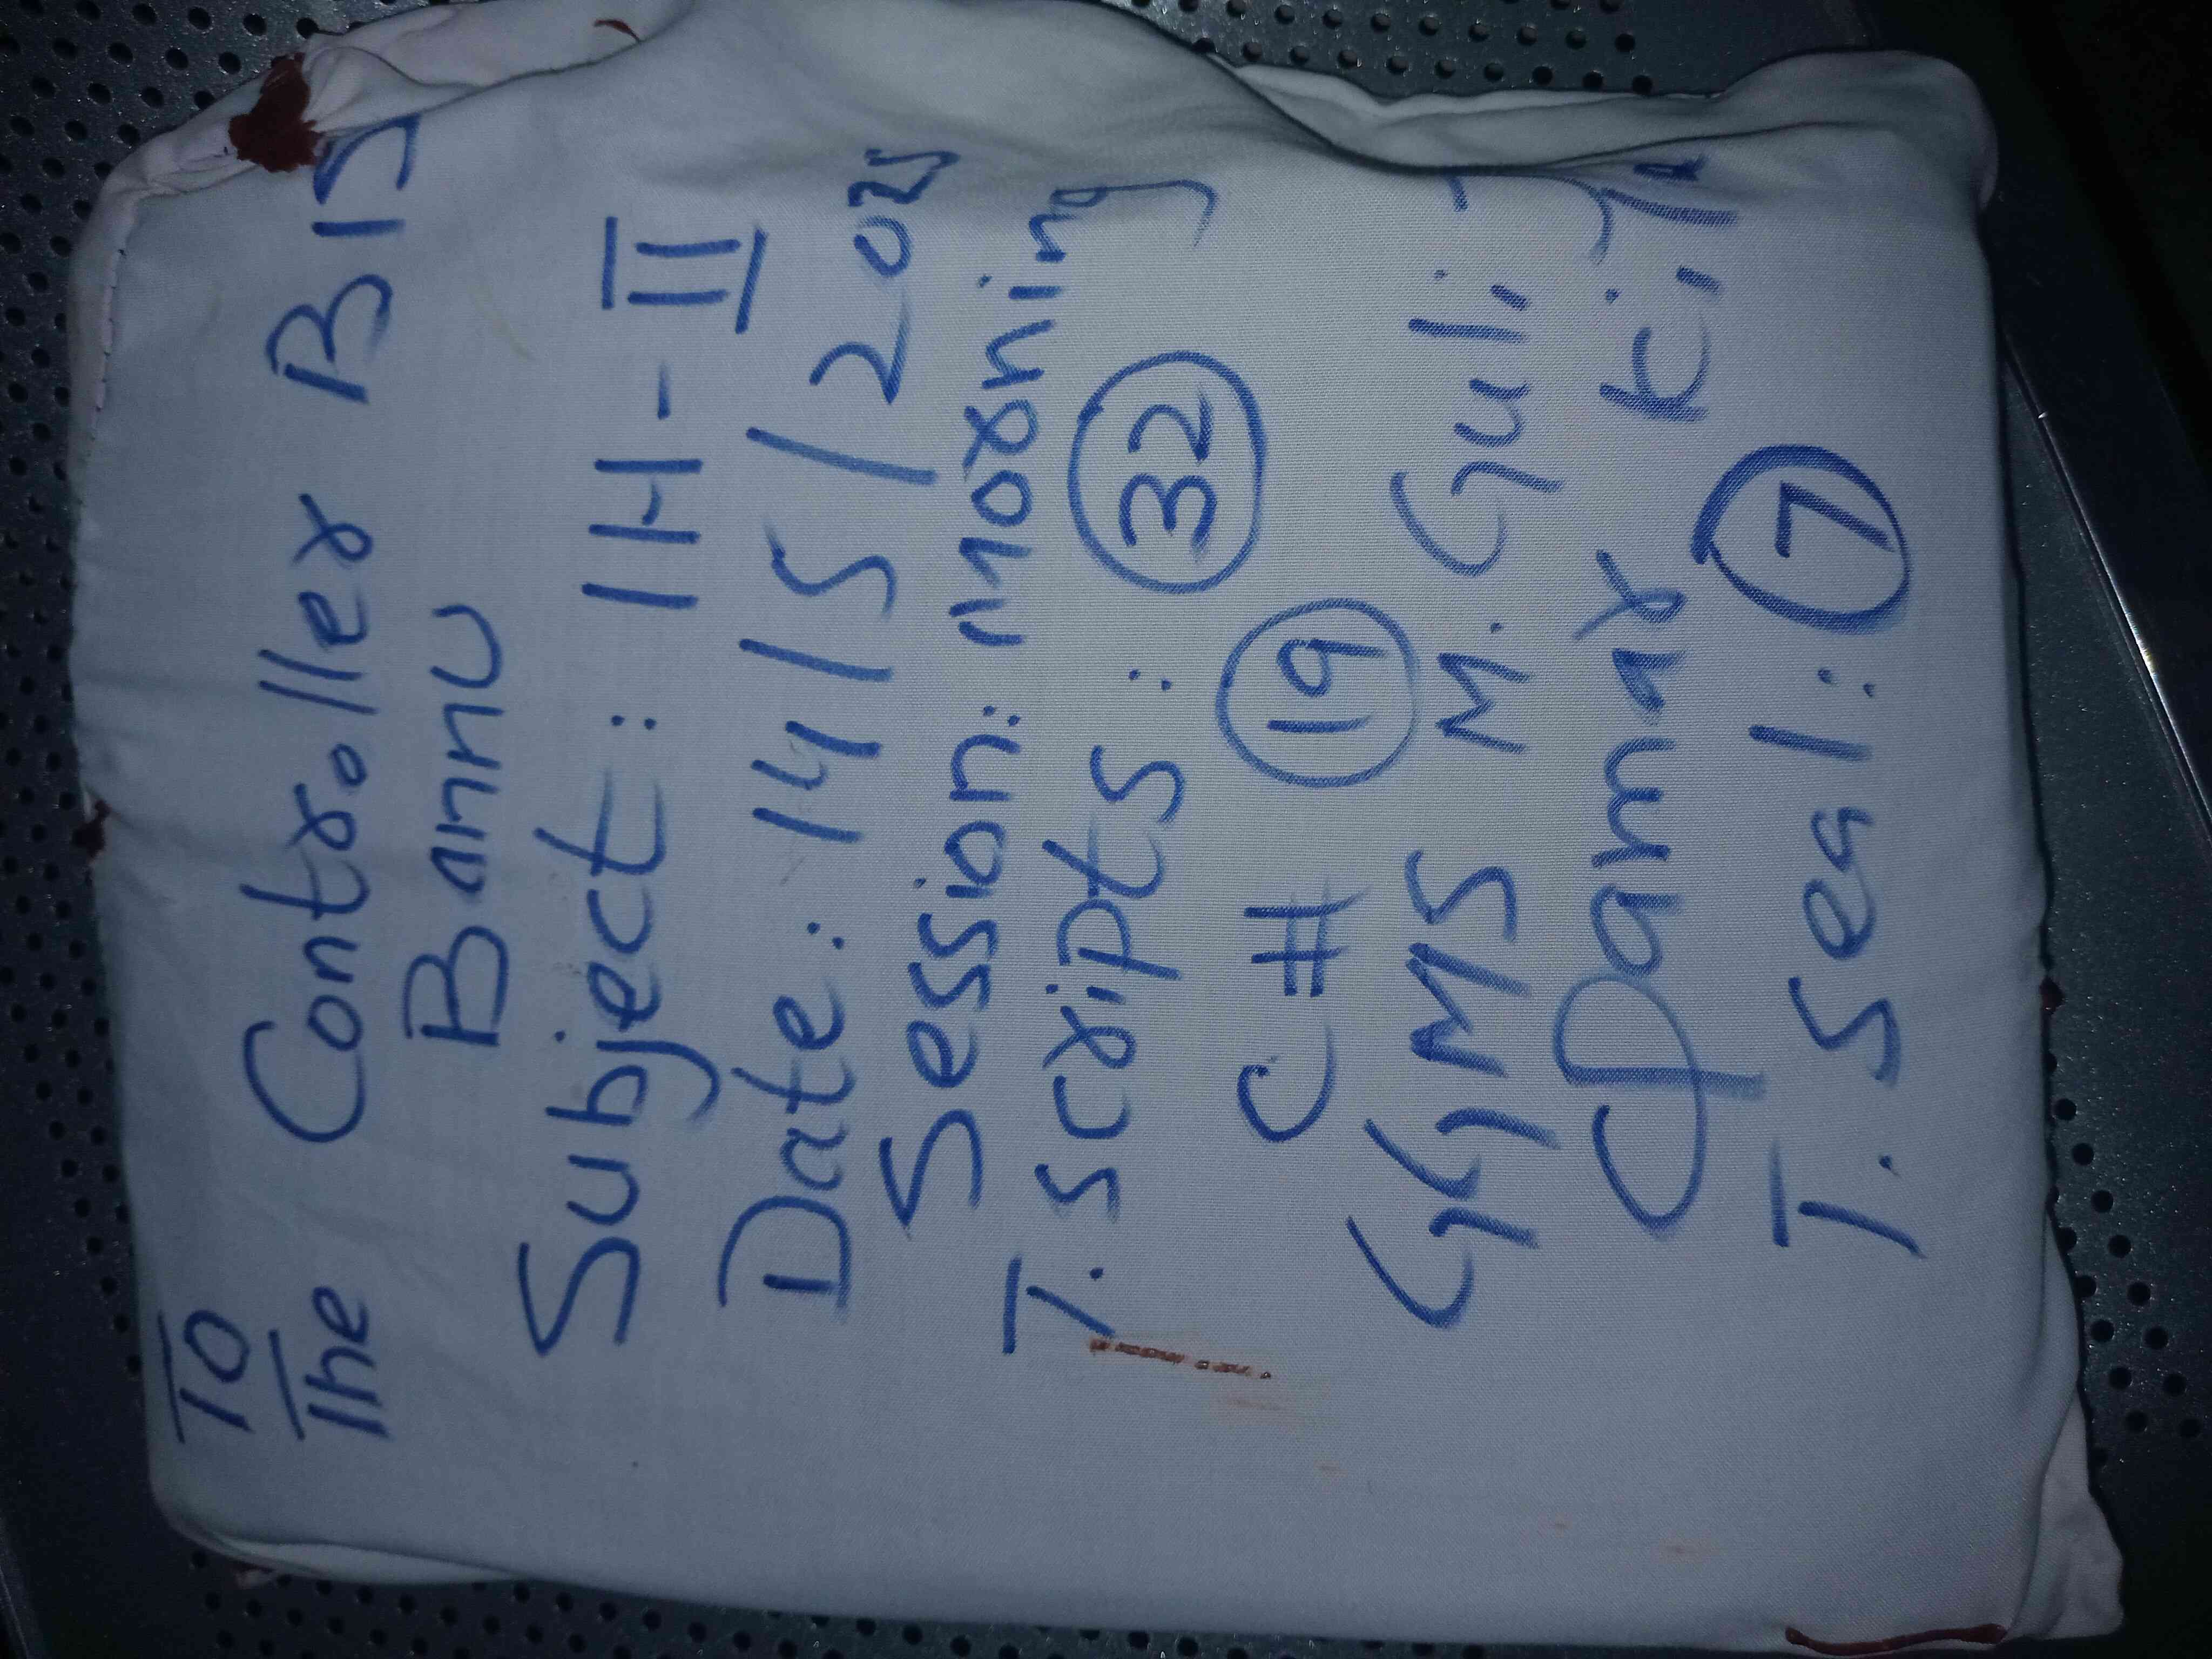 To
The Controller BIS
Bannu
Subject: IH-II
Date: 14/5/2025
Session: morning
T. Scripts: 32
C# 19
GGMS M. Gul
Qamar Ki
T. Seal: 7